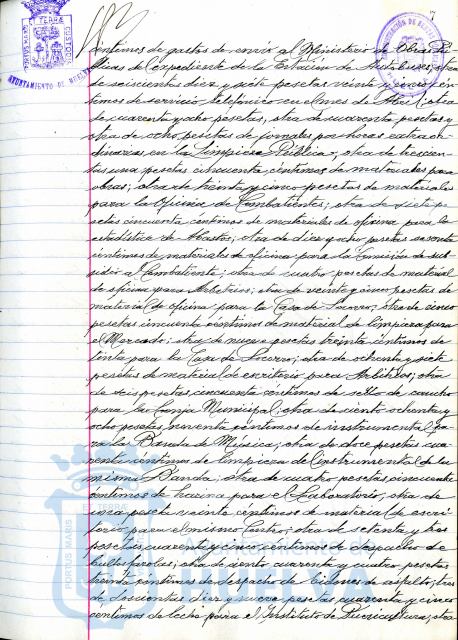 7
PORTUS MARIS ET TERRÆ CUSTODIA
AYUNTAMIENTO DE HUELVA
centimos de gastos de envio al Ministerio de Obras Pú-
blicas del expediente de la Estación de Autobuses; otra
de seiscientas diez y siete pesetas veinte y cinco cén-
timos de servicio telefónico en el mes de Abril; otra
de cuarenta y ocho pesetas, otra de cuarenta pesetas y
otra de ocho pesetas de jornales por horas extraor-
dinarias en la Limpieza Pública; otra de trescien-
tas una pesetas cincuenta céntimos de materiales para
obras; otra de treinta y cinco pesetas de materiales
para la Oficina de Combatientes; otra de siete pe-
setas cincuenta céntimos de materiales de oficina para la
estadística de Abastos; otra de diez y ocho pesetas sesenta
céntimos de materiales de oficina para la Comisión de sub-
sidio al Combatiente; otra de cuatro pesetas de material
de oficina para Arbitrios; otra de veinte y cinco pesetas de
material de oficina para la Casa de Socorro; otra de cinco
pesetas cincuenta céntimos de material de limpieza para
el Mercado; otra de nueve pesetas treinta céntimos de
tinta para la Casa de Socorro; otra de ochenta y siete
pesetas de material de escritorio para Arbitrios; otra
de seis pesetas cincuenta céntimos de sello de caucho
para la Granja Municipal; otra de ciento ochenta y
ocho pesetas noventa céntimos de instrumental pa-
ra la Banda de Música; otra de doce pesetas cua-
renta céntimos de limpieza del instrumental de la
misma Banda; otra de cuatro pesetas cincuenta
céntimos de harina para el Laboratorio; otra de
una peseta veinte céntimos de material de escri-
torio para el mismo Centro; otra de setenta y tres
pesetas cuarenta y cinco céntimos de despacho de
bultos farolas; otra de ciento cuarenta y cuatro pesetas
treinta céntimos de despacho de bidones de asfalto; otra
de doscientas diez y nueve pesetas cuarenta y cinco
céntimos de leche para el Instituto de Puericultura; otra
PORTUS MARIS
Ayuntamiento de
HUELVA